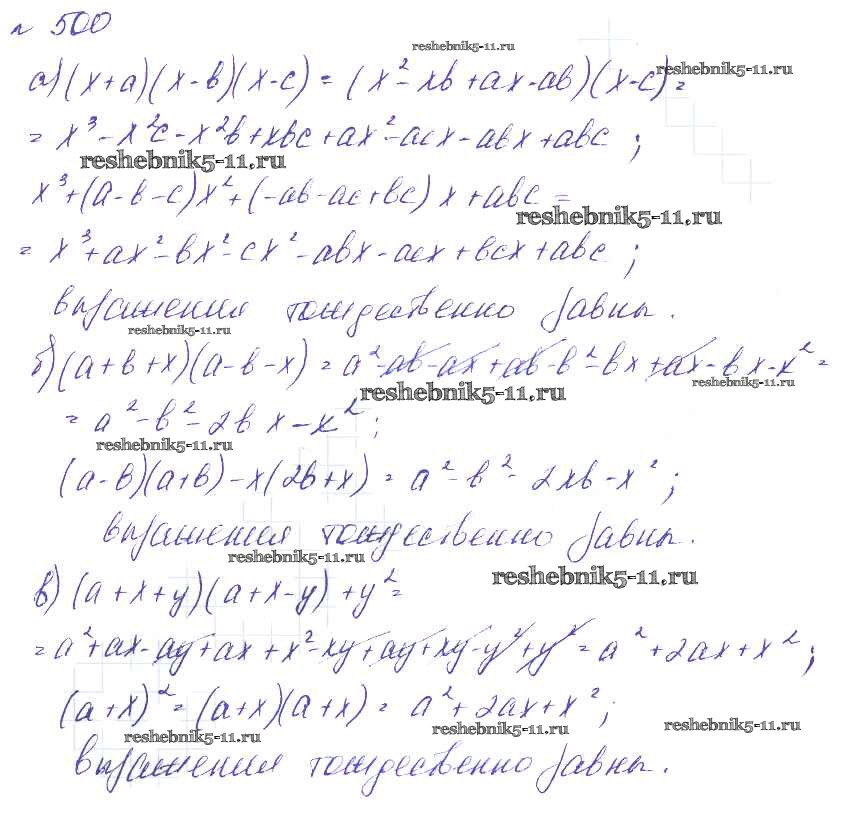 № 500
reshebnik5-11.ru
а) (x+a)(x-в)(x-c) = (x²-xв+ax-aв)(x-c) =
reshebnik5-11.ru
= x³-x²c-x²в+xвc+ax²-acx-aвx+aвc ;
reshebnik5-11.ru
x³+(a-в-c)x²+(-aв-ac+вc)x+aвc =
reshebnik5-11.ru
= x³+ax²-вx²-cx²-aвx-acx+вcx+aвc ;
выражения тождественно равны.
reshebnik5-11.ru
б) (a+в+x)(a-в-x) = a²-aв-ax+aв-в²-вx+ax-вx-x² =
reshebnik5-11.ru
reshebnik5-11.ru
= a²-в²-2вx-x² ;
reshebnik5-11.ru
(a-в)(a+в)-x(2в+x) = a²-в²-2xв-x² ;
выражения тождественно равны.
reshebnik5-11.ru
reshebnik5-11.ru
в) (a+x+y)(a+x-y)+y² =
= a²+ax-ay+ax+x²-xy+ay+xy-y²+y² = a²+2ax+x² ;
(a+x)² = (a+x)(a+x) = a²+2ax+x² ;
reshebnik5-11.ru
reshebnik5-11.ru
reshebnik5-11.ru
выражения тождественно равны.